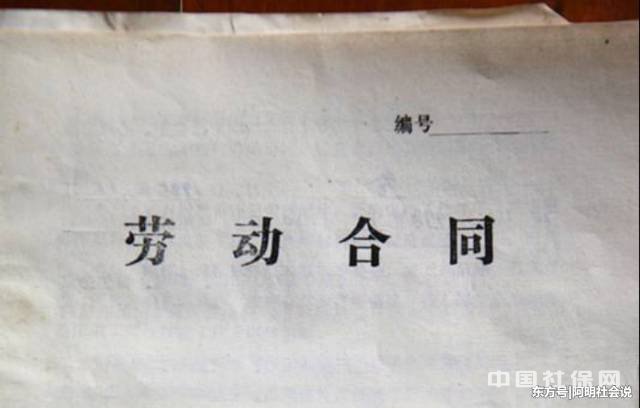 编号
劳动合同
中国社保网
东方号|阿明社会说